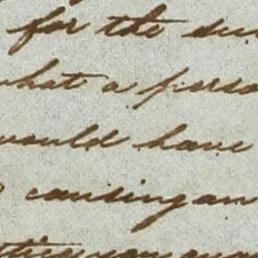 for the su
what a perso
would have
causing an